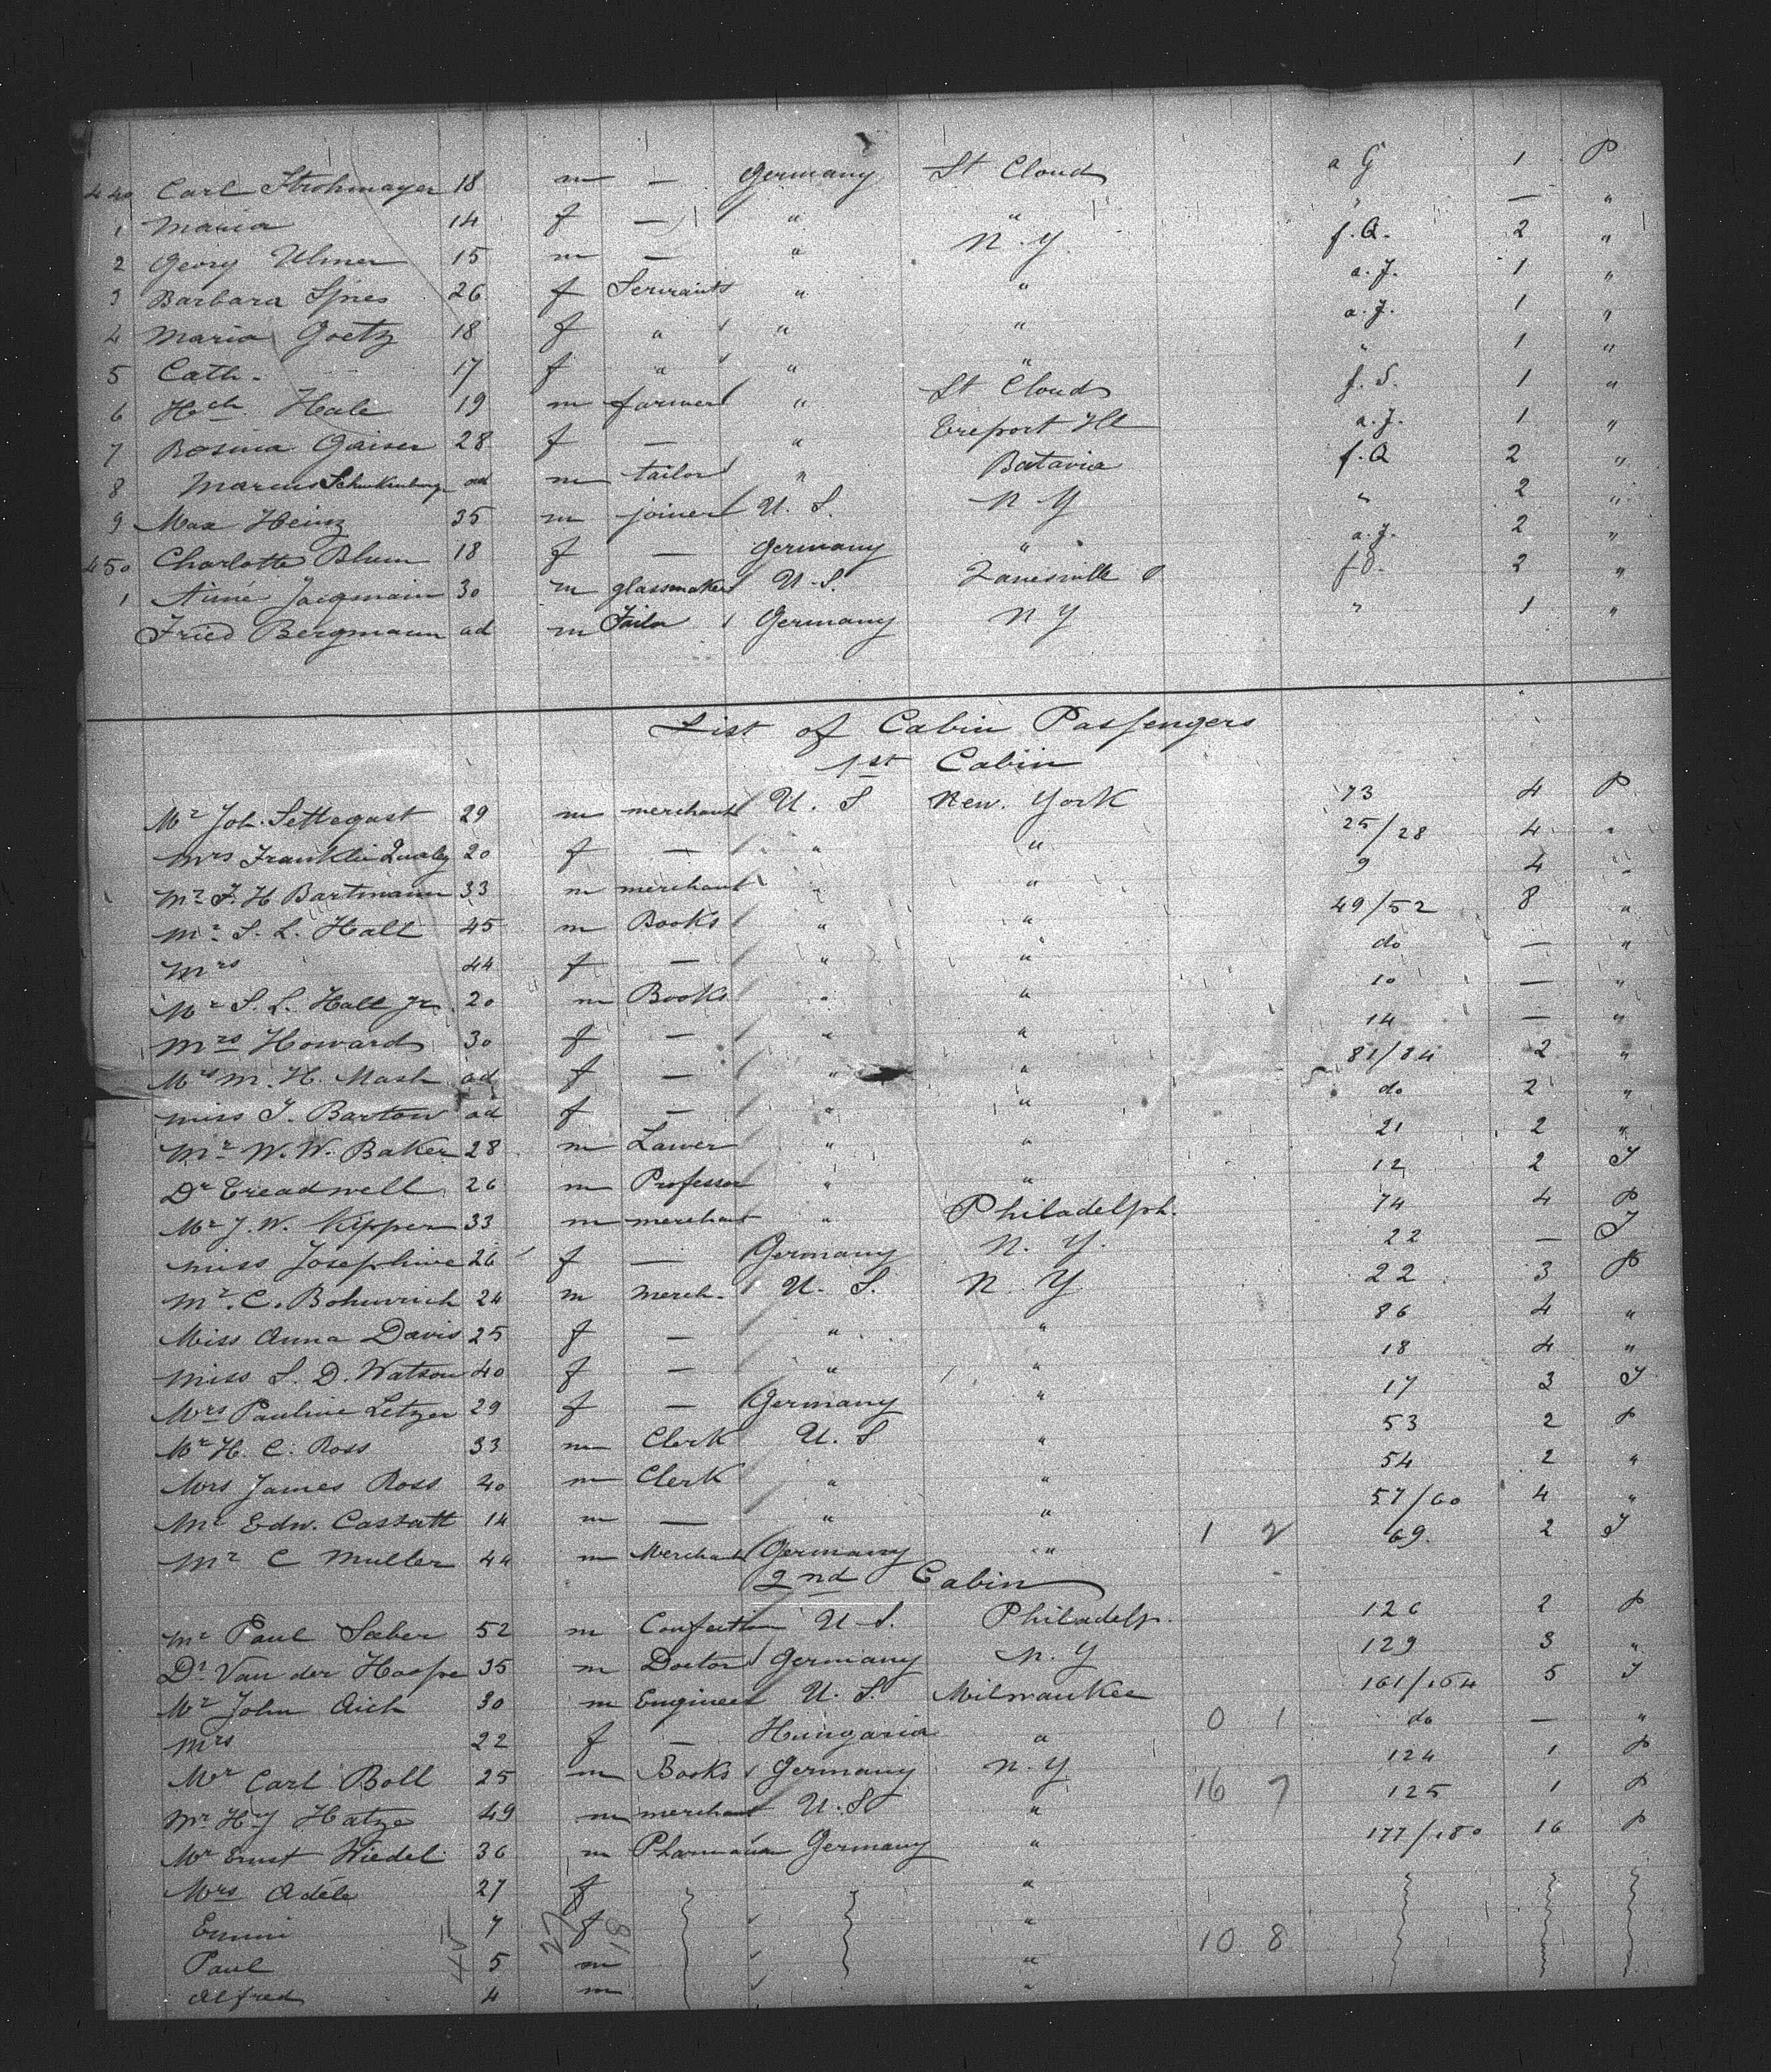 440 Carl Strohmayer 18 m — Germany St Cloud a G 1 P
1 Maria 14 f — " " " — "
2 Georg Ulmer 15 m — " N. Y. f. Q. 2 "
3 Barbara Spies 26 f Servants " " a. J. 1 "
4 Maria Goetz 18 f " " " a. J. 1 "
5 Cath. 17 f " " " " 1 "
6 Hch Hale 19 m farmer " St Cloud f. S. 1 "
7 Rosina Gaiser 28 f — " Freeport Ill a. J. 1 "
8 Marcus ad m tailor " Batavia f. Q 2 "
9 Max Heinz 35 m joiner U. S. N Y " 2 "
450 Charlotte Blum 18 f — Germany " a. J. 2 "
1 Aimé Jacqmain 30 m glassmaker U. S. Zanesville O 2 "
Fried Bergmann ad m Tailor Germany N Y " 1 "
List of Cabin Passengers
1st Cabin
Mr Joh. Settegast 29 m merchant U. S New York 73 4 P
Mrs Franklin 20 f — " " 25/28 4 "
Mr F. H Bartmann 33 m merchant " " 9 4 "
Mr S. L. Hall 45 m Books " " 49/52 8 "
Mrs 44 f — " " do — "
Mr S. L. Hall Jr. 20 m Books " " 10 — "
Mrs Howard 30 f — " " 14 — "
Mrs M. H. Mash ad f — " " 81/84 2 "
Miss J. Bartow ad f — " " do 2 "
Mr W. W. Baker 28 m Lawer " " 21 2 "
Dr Treadwell 26 m Professor " " 12 2 J
Mr J. W. Kipper 33 m merchant " Philadelph. 74 4 P
Miss Josephine 26 f — Germany N. Y. 22 — J
Mr. C. 24 m Merch. U. S. N. Y 22 3 P
Miss Anna Davis 25 f — " " 86 4 "
Miss S. D. Watson 40 f — " " 18 4 "
Mrs Pauline Letzer 29 f — Germany " 17 3 J
Mr H. C. Ross 33 m Clerk U. S " 53 2 P
Mrs James Ross 40 m Clerk " " 54 2 "
Mr Edw. Cassatt 14 m — " " 57/60 4 "
Mr C Muller 44 m Merchant Germany " 1 2 69. 2 J
2nd Cabin
Mr Paul Saber 52 m U. S. Philadelp. 126 2 P
Dr Van der 35 m Doctor Germany N. Y 129 3 "
Mr John Aich 30 m Engineer U. S. Milwaukee 161/164 5 J
Mrs 22 f — Hungaria " 0 1 do — "
Mr Carl Boll 25 m Books Germany N. Y 124 1 P
Mr Hy Hatze 49 m merchant U. S " 16 7 125 1 P
Mr Ernst Wiedel 36 m Germany " 177/180 16 P
Mrs Adéle 27 f "
Emmi 7 f " 10 8
Paul 5 m "
Alfred 4 m "
45 27 18